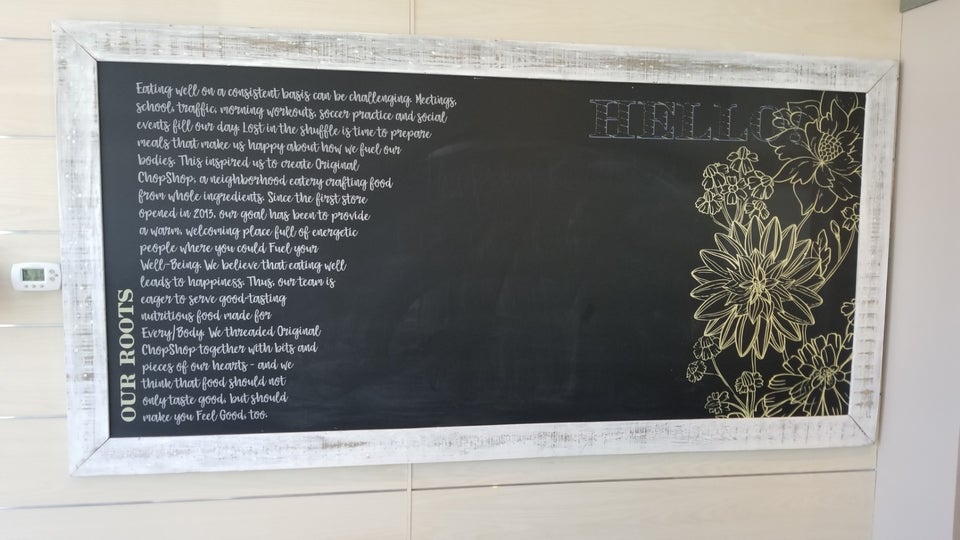 Eating well on a consistent basis can be challenging. Meetings,
school, traffic, morning workouts, soccer practice and social
events fill our day. Lost in the shuffle is time to prepare
meals that make us happy about how we fuel our
bodies. This inspired us to create Original
ChopShop, a neighborhood eatery crafting food
from whole ingredients. Since the first store
opened in 2013, our goal has been to provide
a warm, welcoming place full of energetic
people where you could Fuel your
Well-Being. We believe that eating well
leads to happiness. Thus, our team is
eager to serve good-tasting
nutritious food made for
Every/Body. We threaded Original
ChopShop together with bits and
pieces of our hearts - and we
think that food should not
only taste good, but should
make you Feel Good, too.
OUR ROOTS
HELLO